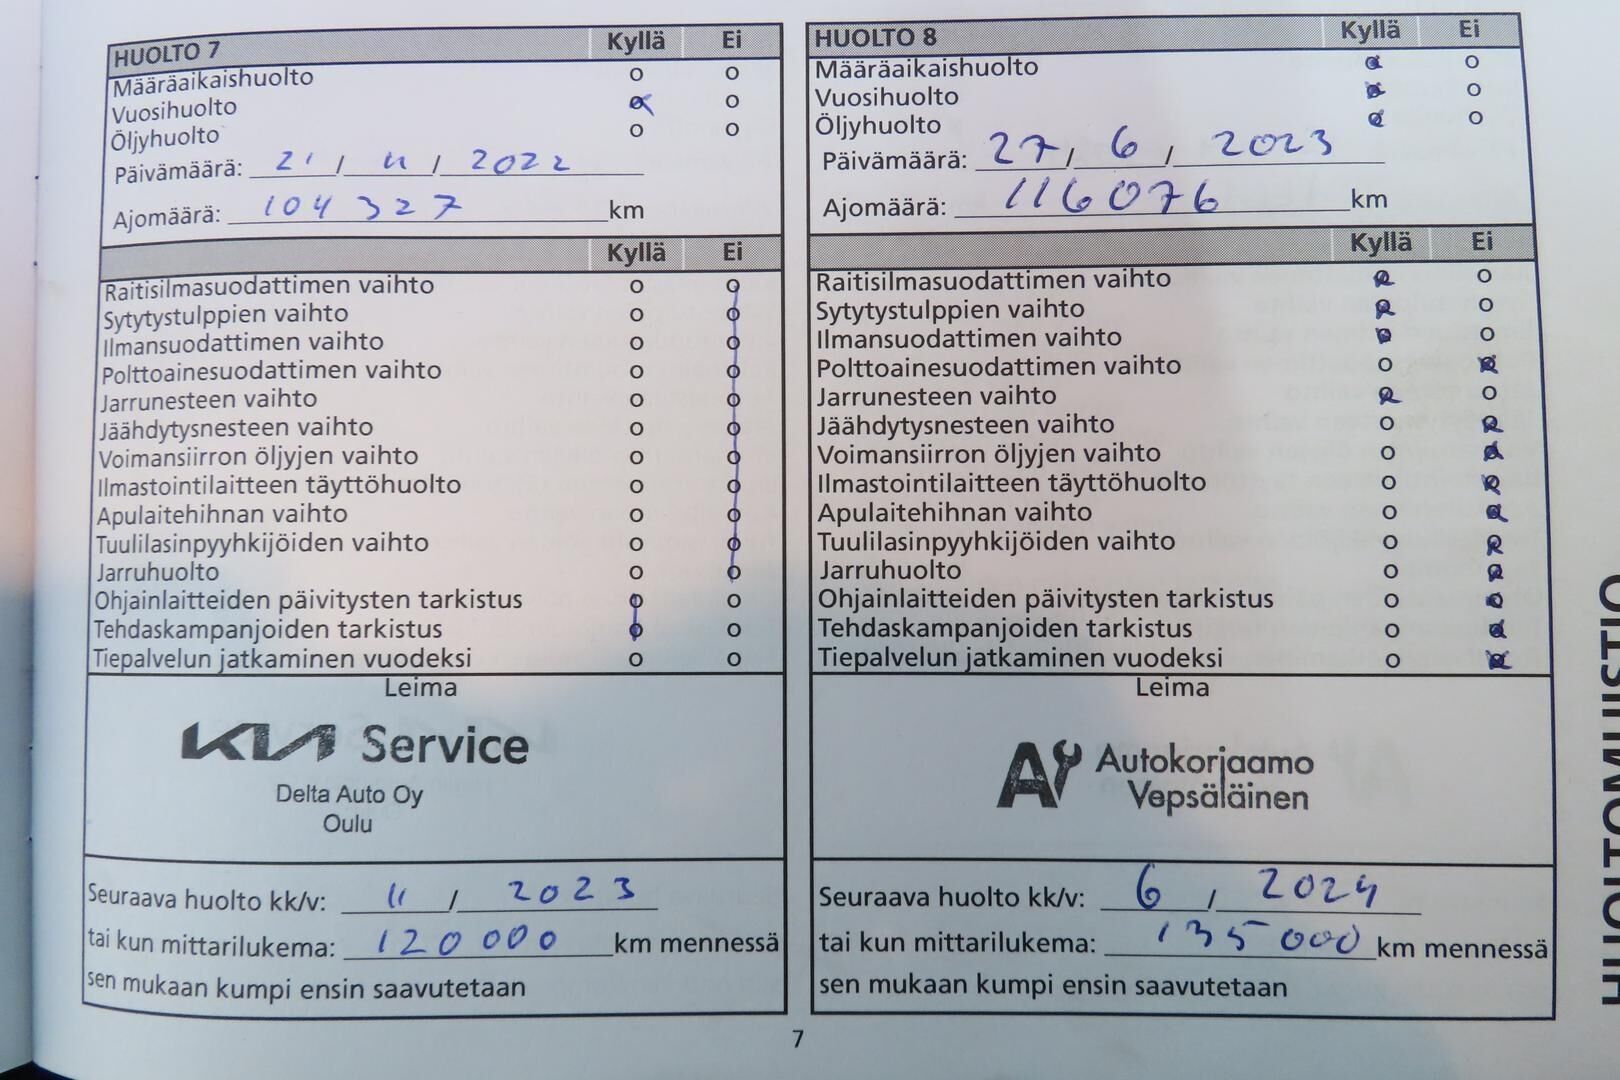 HUOLTO 7 Kyllä Ei
Määräaikaishuolto o o
Vuosihuolto o o
Öljyhuolto o o
Päivämäärä: 21 / 11 / 2022
Ajomäärä: 104 327 km
Kyllä Ei
Raitisilmasuodattimen vaihto o o
Sytytystulppien vaihto o o
Ilmansuodattimen vaihto o o
Polttoainesuodattimen vaihto o o
Jarrunesteen vaihto o o
Jäähdytysnesteen vaihto o o
Voimansiirron öljyjen vaihto o o
Ilmastointilaitteen täyttöhuolto o o
Apulaitehihnan vaihto o o
Tuulilasinpyyhkijöiden vaihto o o
Jarruhuolto o o
Ohjainlaitteiden päivitysten tarkistus o o
Tehdaskampanjoiden tarkistus o o
Tiepalvelun jatkaminen vuodeksi o o
Leima
KIA Service
Delta Auto Oy
Oulu
Seuraava huolto kk/v: 11 / 2023
tai kun mittarilukema: 120 000 km mennessä
sen mukaan kumpi ensin saavutetaan
HUOLTO 8 Kyllä Ei
Määräaikaishuolto o o
Vuosihuolto o o
Öljyhuolto o o
Päivämäärä: 27 / 6 / 2023
Ajomäärä: 116076 km
Kyllä Ei
Raitisilmasuodattimen vaihto o o
Sytytystulppien vaihto o o
Ilmansuodattimen vaihto o o
Polttoainesuodattimen vaihto o o
Jarrunesteen vaihto o o
Jäähdytysnesteen vaihto o o
Voimansiirron öljyjen vaihto o o
Ilmastointilaitteen täyttöhuolto o o
Apulaitehihnan vaihto o o
Tuulilasinpyyhkijöiden vaihto o o
Jarruhuolto o o
Ohjainlaitteiden päivitysten tarkistus o o
Tehdaskampanjoiden tarkistus o o
Tiepalvelun jatkaminen vuodeksi o o
Leima
A Autokorjaamo
Vepsäläinen
Seuraava huolto kk/v: 6 / 2024
tai kun mittarilukema: 135 000 km mennessä
sen mukaan kumpi ensin saavutetaan
7
HUOLTOMUISTIO